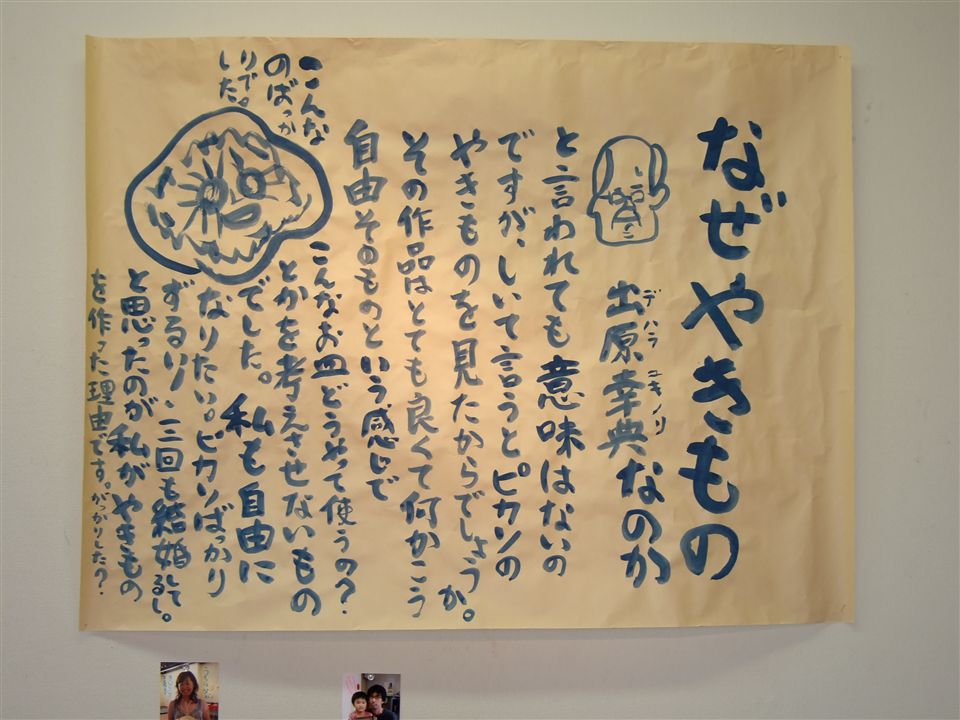 なぜやきもの
なのか
出原幸典
デハラユキノリ
と言われても意味はないの
ですが、しいて言うとピカソの
やきものを見たからでしょうか。
その作品はとても良くて何かこう
自由そのものという感じで
こんな
のばっか
りで
した。
こんなお皿どうやって使うの?
とかを考えさせないもの
でした。私も自由に
なりたい。ピカソばっかり
ずるい!三回も結婚してるし。
と思ったのが私がやきもの
を作った理由です。がっかりした?